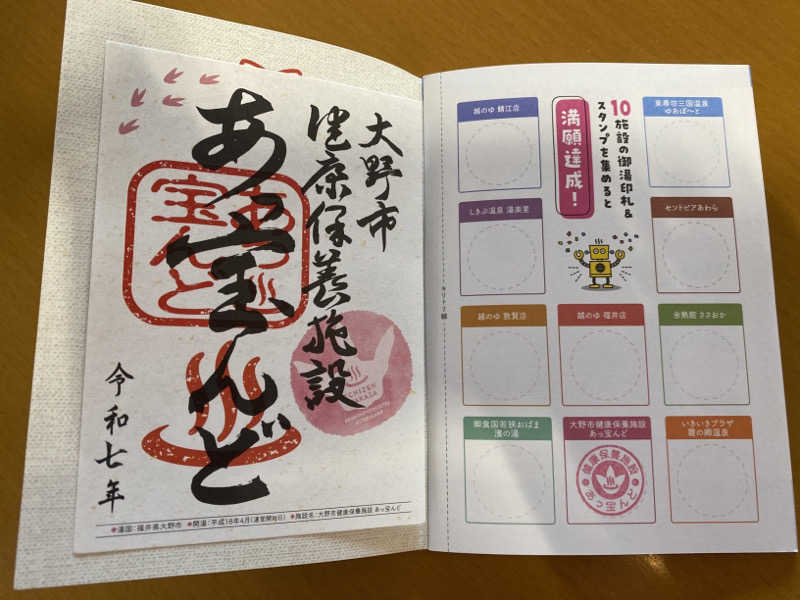 大野市
健康保養施設
あ宝んど
令和七年
あっ宝んど
ECHIZEN
◆湯国:福井県大野市 ◆開湯:平成18年4月(運営開始日) ◆施設名:大野市健康保養施設 あっ宝んど
10施設の御湯印札&
スタンプを集めると
満願達成!
越のゆ 鯖江店
東尋坊三国温泉
ゆあぽーと
しきぶ温泉 湯楽里
セントピアあわら
キリトリ線
越のゆ 敦賀店
越のゆ 福井店
御食国若狭おばま
濱の湯
大野市健康保養施設
あっ宝んど
健康保養施設
あっ宝んど
いきいきプラザ
霞の郷温泉